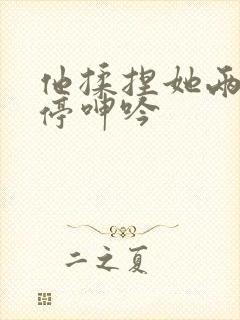 他揉捏她两
停呻吟
二之夏